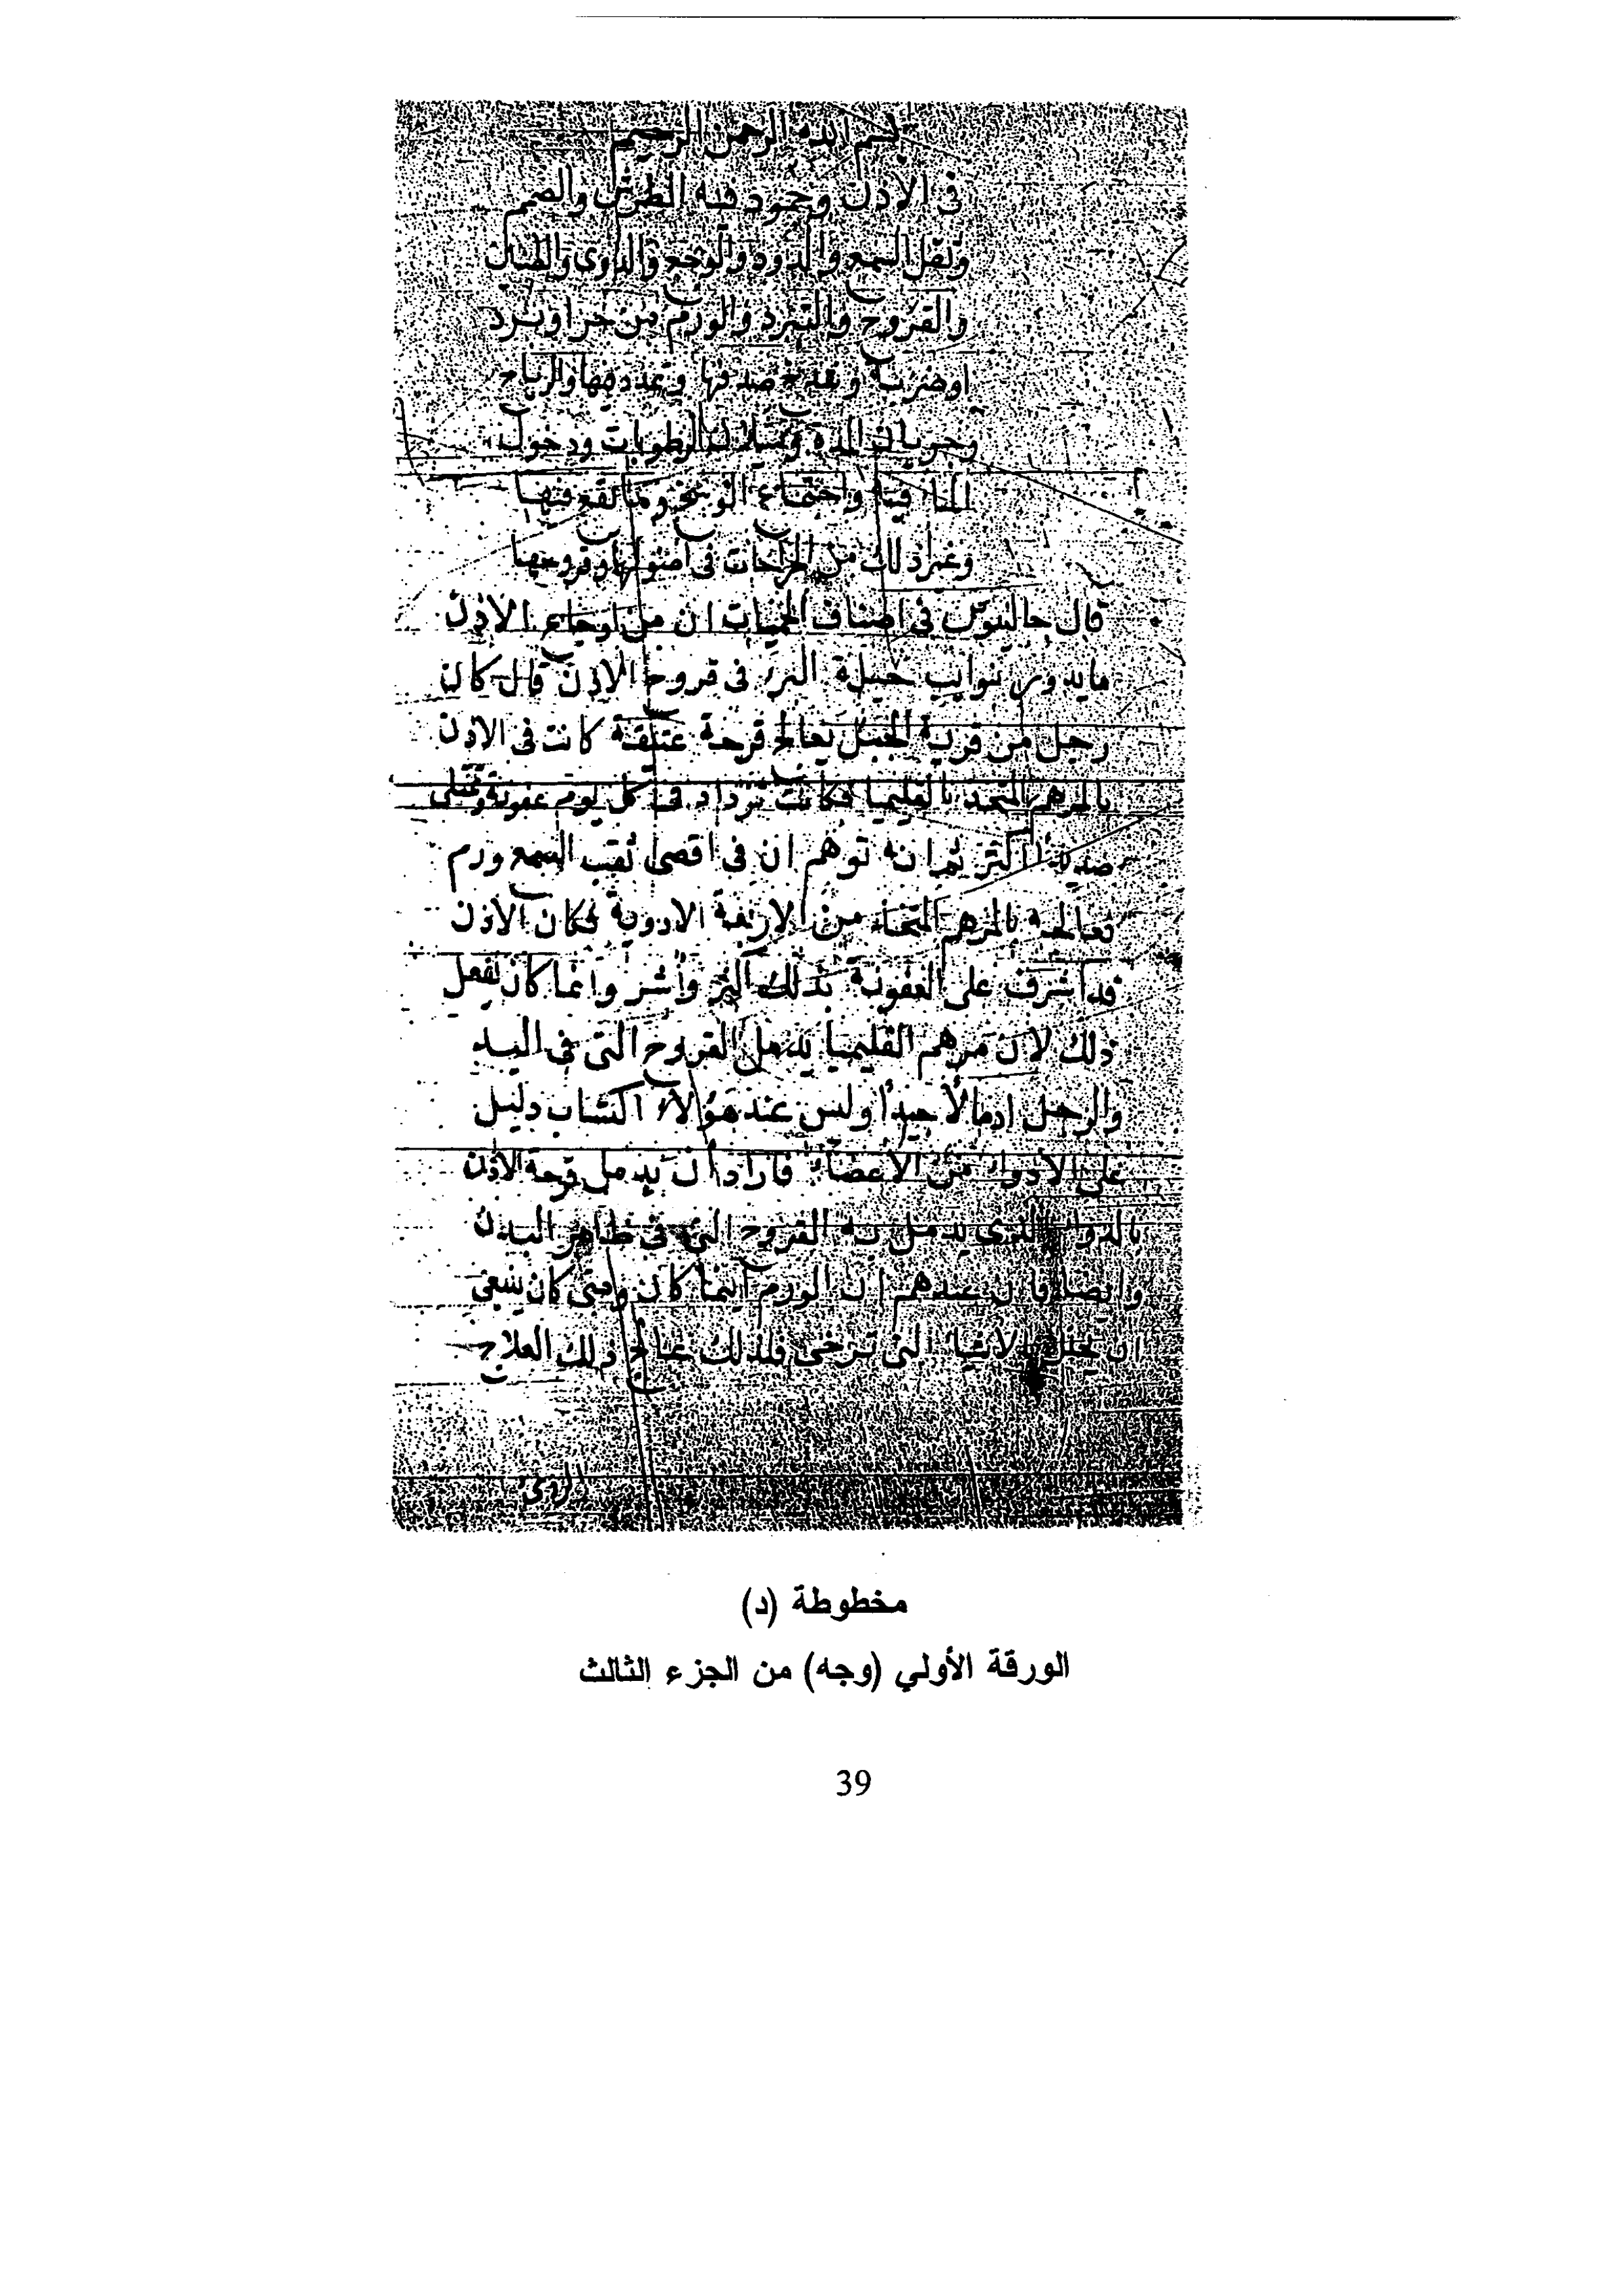 بسم الله الرحمن الرحيم
فى الاذن وجمود فيه الطرش والصمم
وثقل السمع والدود والوجع والدوى والطنين
والقروح والتبرد والورم من حر او برد
او ضربة وفدخ صدفها وتمدد فيها والرياح
وجريان المدة وسيلان الرطوبات ودخول
الماء فيها واجتماع الوسخ وما يقع فيها
وغير ذلك من الجراحات فى اصولها وقروحها
قال جالينوس فى اصناف الحميات ان من اوجاع الاذن
ما يدور بنوايب حيلة البرء فى قروح الاذن قال كان
رجل من قرية الجبل يعالج قرحة عتيقة كانت فى الاذن
بالمرهم المتخذ بالقليميا فكانت تزداد فى كل يوم عفونة وتمتلى
صديدا اكثر ثم انه توهم ان فى اقصى ثقب السمع ورم
فعالجه بالمرهم المتخذ من الاربعة الادوية فكان الاذن
قد اشرف على العفونة بذلك اكثر وأشر وانما كان يفعل
ذلك لان مرهم القليميا يدمل القروح التى فى اليد
والرجل ادمالاً جيداً وليس عند هؤلاء اكتساب دليل
على الادواء من الاعضاء فاراد أن يدمل قرحة الاذن
بالدواء الذى يدمل به القروح التى فى ظاهر البدن
وايضا فان عندهم ان الورم اينما كان ومتى كان ينبغى
ان يحلل بالاشياء التى ترخى فلذلك عالج ذلك العلاج
مخطوطة (د)
الورقة الأولي (وجه) من الجزء الثالث
39